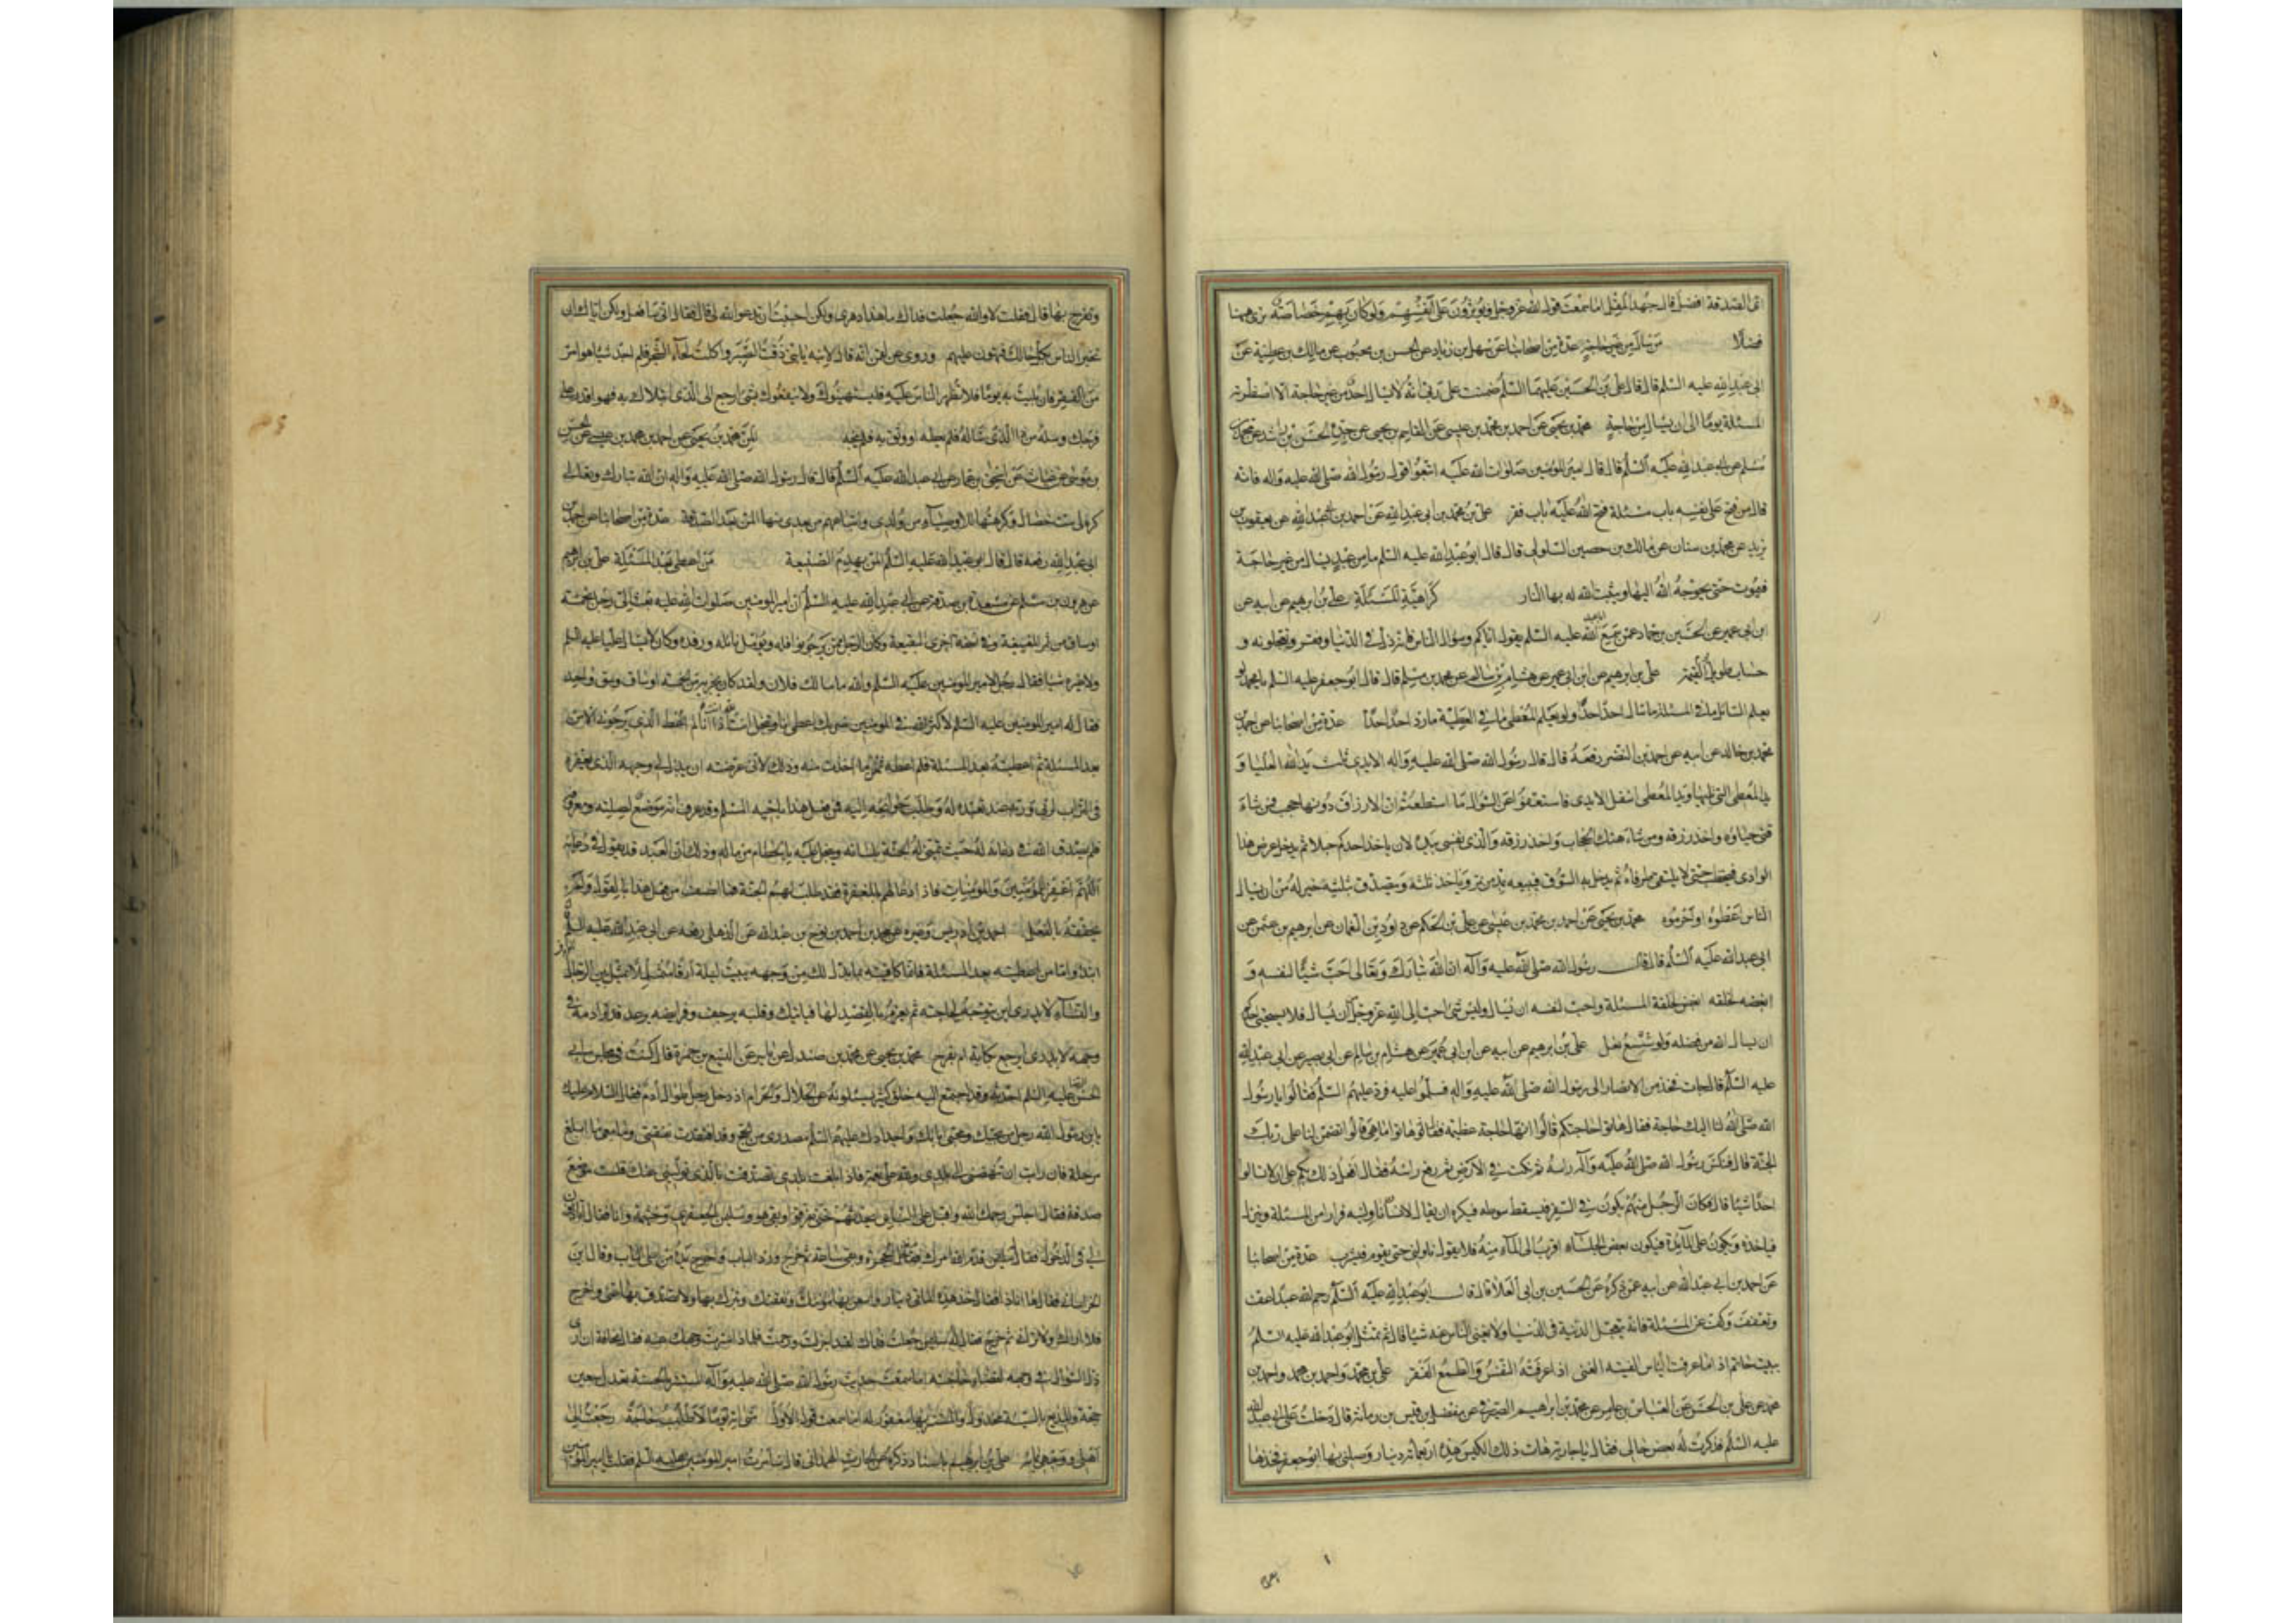 اى الصدقة افضل قال جهد المقل اما سمعت قول الله عز وجل ويؤثرون على انفسهم ولو كان بهم خصاصة ترى ههنا
فضلا من سال من غير حاجة عدة من اصحابنا عن سهل بن زياد عن الحسن بن محبوب عن مالك بن عطية عن
ابى عبد الله عليه السلم قال قال على بن الحسين عليهما السلم ضمنت على ربى انه لا يسال احد من غير حاجة الا اضطرته
المسئلة يوما الى ان يسال من حاجة محمد بن يحيى عن احمد بن محمد بن عيسى عن القاسم بن يحيى عن جده الحسن بن راشد عن محمد بن
مسلم عن ابى عبد الله عليه السلم قال قال امير المؤمنين صلوات الله عليه اتبعوا قول رسول الله صلى الله عليه واله فانه
قال من فتح على نفسه باب مسئلة فتح الله عليه باب فقر على بن محمد بن ابى عبد الله عن احمد بن ابى عبد الله عن يعقوب بن
يزيد عن محمد بن سنان عن مالك بن حصين السلولى قال قال ابو عبد الله عليه السلم ما من عبد يسال من غير حاجة
فيموت حتى يحوجه الله اليها ويثبت الله له بها النار كراهية المسئلة على بن ابرهيم عن ابيه عن
ابن ابى عمير عن الحسين بن حماد عمن سمع ابا عبد الله عليه السلم يقول اياكم وسؤال الناس فانه ذل فى الدنيا وفقر وتعجلونه و
حساب طويل يوم القيمة على بن ابرهيم عن ابن ابى عمير عن هشام بن سالم عن محمد بن مسلم قال قال ابو جعفر عليه السلم يا محمد لو
يعلم السائل ما فى المسئلة ما سال احد احدا ولو يعلم المعطى ما فى العطية ما رد احد احدا عدة من اصحابنا عن احمد بن
محمد بن خالد عن ابيه عن احمد بن النضر رفعه قال قال رسول الله صلى الله عليه واله الايدى ثلث يد الله العليا و
يد المعطى التى تليها ويد المعطى اسفل الايدى فاستعفوا عن السؤال ما استطعتم ان الارزاق دونها حجب فمن شاء
قنى حياؤه واخذ رزقه ومن شاء هتك الحجاب واخذ رزقه والذى نفسى بيده لان ياخذ احدكم حبلا ثم يدخل عرض هذا
الوادى فيحتطب حتى لا يلتقى طرفاه ثم يدخل به السوق فيبيعه بمد من تمر وياخذ ثلثه ويتصدق بثلثيه خير له من ان يسال
الناس اعطوه او حرموه محمد بن يحيى عن احمد بن محمد بن عيسى عن على بن الحكم عن داود بن النعمان عن ابرهيم بن عثمن عن
ابى عبد الله عليه السلم قال قال رسول الله صلى الله عليه واله ان الله تبارك وتعالى احب شيئا لنفسه و
ابغضه لخلقه ابغض لخلقه المسئلة واحب لنفسه ان يسال وليس شئ احب الى الله عز وجل من ان يسال فلا يستحيى احدكم
ان يسال الله من فضله ولو شسع نعل على بن ابرهيم عن ابيه عن ابن ابى عمير عن هشام بن سالم عن ابى بصير عن ابى عبد الله
عليه السلم قال جات فخذ من الانصار الى رسول الله صلى الله عليه واله فسلموا عليه فرد عليهم السلم فقالوا يا رسول
الله صلى الله لنا اليك حاجة فقال هاتوا حاجتكم قالوا انها حاجة عظيمة فقال هاتوا ما هى قالوا تضمن لنا على ربك
الجنة قال فنكس رسول الله صلى الله عليه واله راسه ثم نكت فى الارض ثم رفع راسه فقال افعل ذلك بكم على ان لا تسالوا
احدا شيئا قال فكان الرجل منهم يكون فى السفر فيسقط سوطه فيكره ان يقال لانسان ناولنيه فرارا من المسئلة وينزل
فياخذه ويكون على المائدة فيكون بعض الجلساء اقرب الى الماء منه فلا يقول ناولنى حتى يقوم فيشرب عدة من اصحابنا
عن احمد بن ابى عبد الله عن ابيه عمن ذكره عن الحسين بن ابى العلا قال قال ابو عبد الله عليه السلم رحم الله عبدا عف
وتعفف وكف عن المسئلة فانه يتعجل الدنية فى الدنيا ولا يغنى الناس عنه شيئا قال ثم تمثل ابو عبد الله عليه السلم
ببيت حاتم اذا ما عرفت الياس الفيته الغنى اذا عرفته النفس والطمع الفقر على بن محمد واحمد بن محمد
عن على بن الحسن عن العباس بن عامر عن محمد بن ابرهيم الصيرفى عن مفضل بن قيس بن رمانة قال دخلت على ابى عبد الله
عليه السلم فذكرت له بعض حالى فقال يا جارية هات ذلك الكيس هذه اربعمائة دينار وصلنى بها ابو جعفر فخذها
وتفرج بها قال فقلت لا والله جعلت فداك ما هذا دهرى ولكن احببت ان تدعو الله لى قال فقال انى سافعل ولكن اياك ان
تخبر الناس بكل حالك فتهون عليهم وروى عن لقمن انه قال لابنه يا بنى ذقت الصبر واكلت لحاء الشجر فلم اجد شيئا هو امر
من الفقر فان بليت به يوما فلا تظهر الناس عليه فيستهينوك ولا ينفعوك بشئ ارجع الى الذى ابتلاك به فهو اقدر على
فرجك وسله من ذا الذى ساله فلم يعطه او وثق به فلم ينجه المن محمد بن يحيى عن احمد بن محمد بن عيسى عن الحسن
بن موسى عن غياث عن اسحق بن عمار عن ابى عبد الله عليه السلم قال قال رسول الله صلى الله عليه واله ان الله تبارك وتعالى
كره لى ست خصال وكرهتها للاوصياء من ولدى واتباعهم من بعدى منها المن بعد الصدقة عدة من اصحابنا عن احمد بن
ابى عبد الله رفعه قال قال ابو عبد الله عليه السلم المن يهدم الصنيعة من اعطى بعد المسئلة على بن ابرهيم
عن هرون بن مسلم عن مسعدة بن صدقة عن ابى عبد الله عليه السلم ان امير المؤمنين صلوات الله عليه بعث الى رجل بخمسة
اوساق من تمر البغيبغة وفى نسخة اخرى البقيعة وكان الرجل ممن يرجو نوافله ويؤمل نائله ورفده وكان لا يسال عليا عليه السلم
ولا غيره شيئا فقال رجل لامير المؤمنين عليه السلم والله ما سالك فلان ولقد كان يجزيه من الخمسة اوساق وسق واحد
فقال له امير المؤمنين عليه السلم لا كثر الله فى المؤمنين ضربك اعطى انا وتبخل انت لله انت اذا انا لم اعط الذى يرجونى الا من
بعد المسئلة ثم اعطيته بعد المسئلة فلم اعطه ثمن ما اخذت منه وذلك لانى عرضته ان يبذل لى وجهه الذى يعفره
فى التراب لربى وربه عند تعبده له وطلب حوائجه اليه فمن فعل هذا باخيه المسلم وقد عرف انه موضع لصلته ومعروفه
فلم يصدق الله فى دعائه له حيث يتمنى له الجنة بلسانه ويبخل عليه بالحطام من ماله وذلك ان العبد قد يقول فى دعائه
اللهم اغفر للمؤمنين والمؤمنات فاذا دعا لهم بالمغفرة فقد طلب لهم الجنة فما انصف من فعل هذا بالقول ولم
يحققه بالفعل احمد بن ادريس وغيره عن محمد بن احمد بن نوح بن عبد الله عن الذهلى رفعه عن ابى عبد الله عليه السلم
ابتداء واما من اعطيته بعد المسئلة فانما كافيته بما بذل لك من وجهه يبيت ليلته ارقا متململا يمثل بين الرجاء
والياس لا يدرى اين يتوجه لحاجته ثم يعزم بالقصد لها فياتيك وقلبه يرجف وفرائصه ترعد قد ترى دمه فى
وجهه لا يدرى ايرجع بكابة ام بفرح محمد بن يحيى عن محمد بن صندل عن ياسر عن اليسع بن حمزة قال كنت فى مجلس ابى
الحسن الرضا عليه السلم احدثه وقد اجتمع اليه خلق كثير يسئلونه عن الحلال والحرام اذ دخل رجل طوال ادم فقال السلام عليك
يا بن رسول الله رجل من محبيك ومحبى ابائك واجدادك عليهم السلم مصدرى من الحج وقد افتقدت نفقتى وما معى ما ابلغ
مرحلة فان رايت ان تنهضنى الى بلدى ولله على نعمة فاذا بلغت بلدى تصدقت بالذى تولينى عنك فلست موضع
صدقة فقال اجلس رحمك الله واقبل على الناس يحدثهم حتى تفرقوا وبقى هو وسليمن الجعفرى وخيثمة وانا فقال اتاذنون
لى فى الدخول فقال له سليمن قدم الله امرك فقام فدخل الحجرة وبقى ساعة ثم خرج ورد الباب واخرج يده من اعلى الباب وقال اين
الخراسانى فقال ها انا ذا فقال خذ هذه المائتى دينار واستعن بها فى مؤنتك ونفقتك وتبرك بها ولا تصدق بها عنى واخرج
فلا اراك ولا ترانى ثم خرج فقال له سليمن جعلت فداك لقد اجزلت ورحمت فلماذا سترت وجهك عنه فقال مخافة ان ارى
ذل السؤال فى وجهه لقضائى حاجته اما سمعت حديث رسول الله صلى الله عليه واله المستتر بالحسنة تعدل سبعين
حجة والمذيع بالسيئة مخذول والمستتر بها مغفور له اما سمعت قول الاول متى اته يوما لاطلب حاجة رجعت الى
اهلى ووجهى بمائه على بن ابرهيم باسناد ذكره عن الحارث الهمدانى قال سامرت امير المؤمنين عليه السلم فقلت يا امير المؤمنين